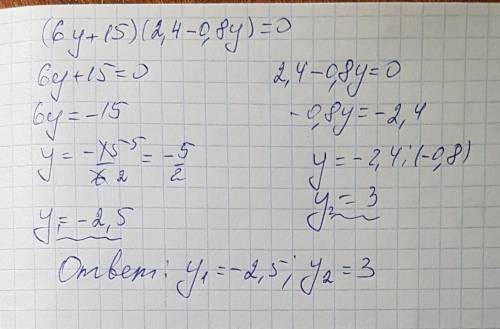 (6y+15)(2,4-0,8y)=0
6y+15=0
6y=-15
y= -15⁻⁵/6 2 = -5/2
y₁=-2,5
2,4-0,8y=0
-0,8y=-2,4
y=-2,4:(-0,8)
y₂=3
Ответ: y₁=-2,5; y₂=3